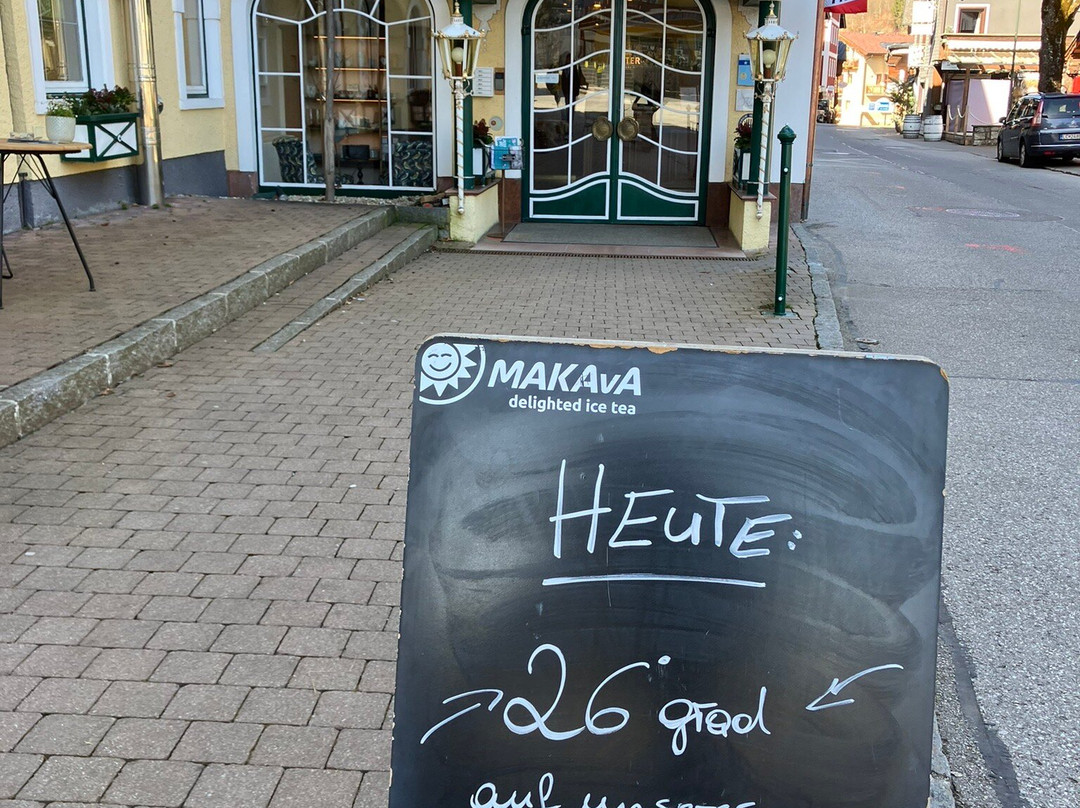 MAKAvA
delighted ice tea
HEUTE:
26° grad
auf unsere